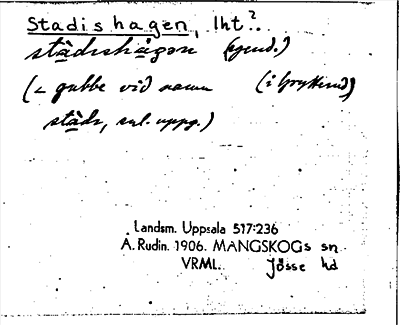 Stadishagen, lht?
städishagen (gend.)
(= gubbe vid namn (i
städi, enl. uppg.)
Landsm. Uppsala 517:236
A. Rudin. 1906. MANGSKOGs sn
VRML. Jösse hd